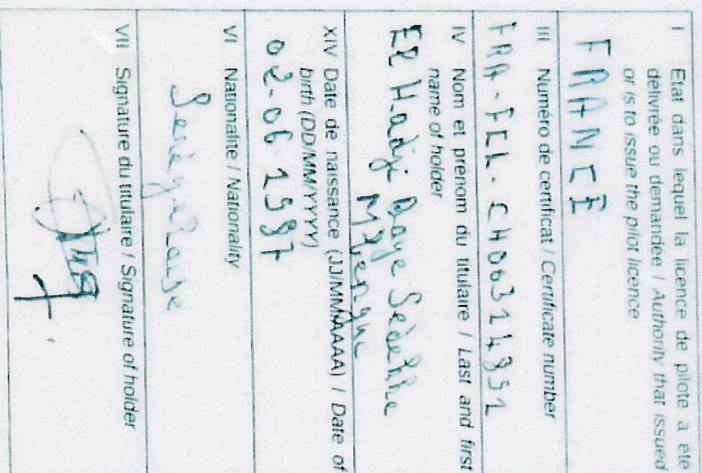 I Etat dans lequel la licence de pilote a été
délivrée ou demandée / Authority that issued
or is to issue the pilot licence
FRANCE
III Numéro de certificat / Certificate number
FRA-FCL-CH00314951
IV Nom et prénom du titulaire / Last and first
name of holder
El Hadji Daye
XIV Date de naissance (JJ/MM/AAAA) / Date of
birth (DD/MM/YYYY)
02-06 1987
VI Nationalité / Nationality
Sénégalaise
VII Signature du titulaire / Signature of holder